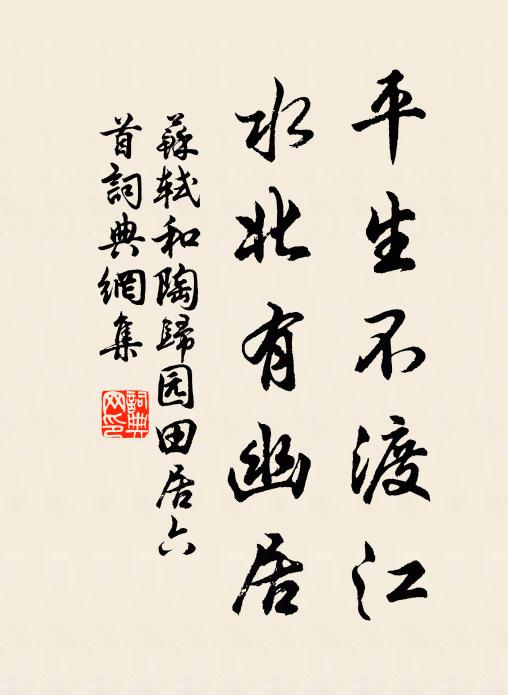 平生不渡江
水北有幽居
蘇軾和陶歸园田居六
首詞典網集
詞典
网印